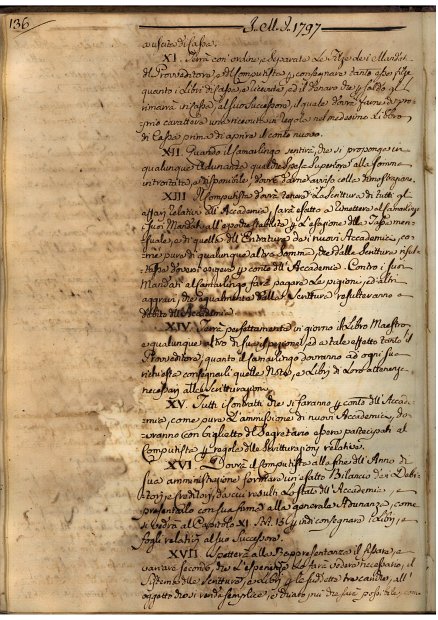 136
J. M. J. 1797
a uscita di Cassa.
XI. Terrà con ordine, e separate le Filze de i Mandati
del Provveditore, e del Computista, e consegnare tanto esse filze
quanto i Libri di Cassa, e ricevute, ed il denaro che per saldo gli
rimarrà in Cassa al suo Successore, il quale dovrà farne di pro-
prio carattere una ricevuta in regola nel medesimo Libro
di Cassa prima di aprire il conto nuovo.
XII. Quando il Camarlingo sentirà, che si proponga in
qualunque Adunanza qualche spesa superiore alla somma
introitata, e disponibile, dovrà darne avviso colla dimostrazione.
XIII. Il Computista dovrà tenere la Scrittura di tutti gli
affari relativi all'Accademia, sarà esatto a rimettere al Camarlingo
i suoi Mandati all'epoche stabilite per l'esazione delle Tasse men-
suali, e di quella dell'Entratura de i nuovi Accademici, co-
me pure di qualunque altra somma, che dalla Scrittura risul-
tasse doversi esigere per conto dell'Accademia. Contro i suoi
Mandati al Camarlingo farà pagare le pigioni, ed altri
aggravi, che egualmente dalla Scrittura resulteranno a
debito dell'Accademia.
XIV. Terrà perfettamente in giorno il Libro Maestro,
e qualunque altro di sua ispezione, ed a tale effetto tanto il
Provveditore, quanto il Camarlingo dovranno ad ogni sua
richiesta consegnarli quelle Note, e Libri di Loro attenenza
necessari alle Scritturazioni.
XV. Tutti i Contratti che si faranno per conto dell'Accade-
mia, come pure l'ammissione di nuovi Accademici, do-
vranno con Biglietto del Segretario essere partecipati al
Computista per regola delle Scritturazioni relative.
XVI. Dovrà il Computista alla fine dell'Anno di
sua amministrazione formare un esatto Bilancio de i Debi-
tori, e Creditori, da cui resulti lo stato dell'Accademia, e
presentarlo con sua firma alla generale Adunanza, come
si vedrà al Capitolo XI. Quindi consegnare i Libri, e
fogli relativi al suo Successore.
XVII. Aspetterà alla Rappresentanza il fissare, e
variare secondo, che l'esperienza Le farà vedere necessario, il
Sistema delle Scritture, e Libri per le suddette tre cariche, all'
oggetto che si renda semplice, ed ovvio, più che sarà possibile, com-